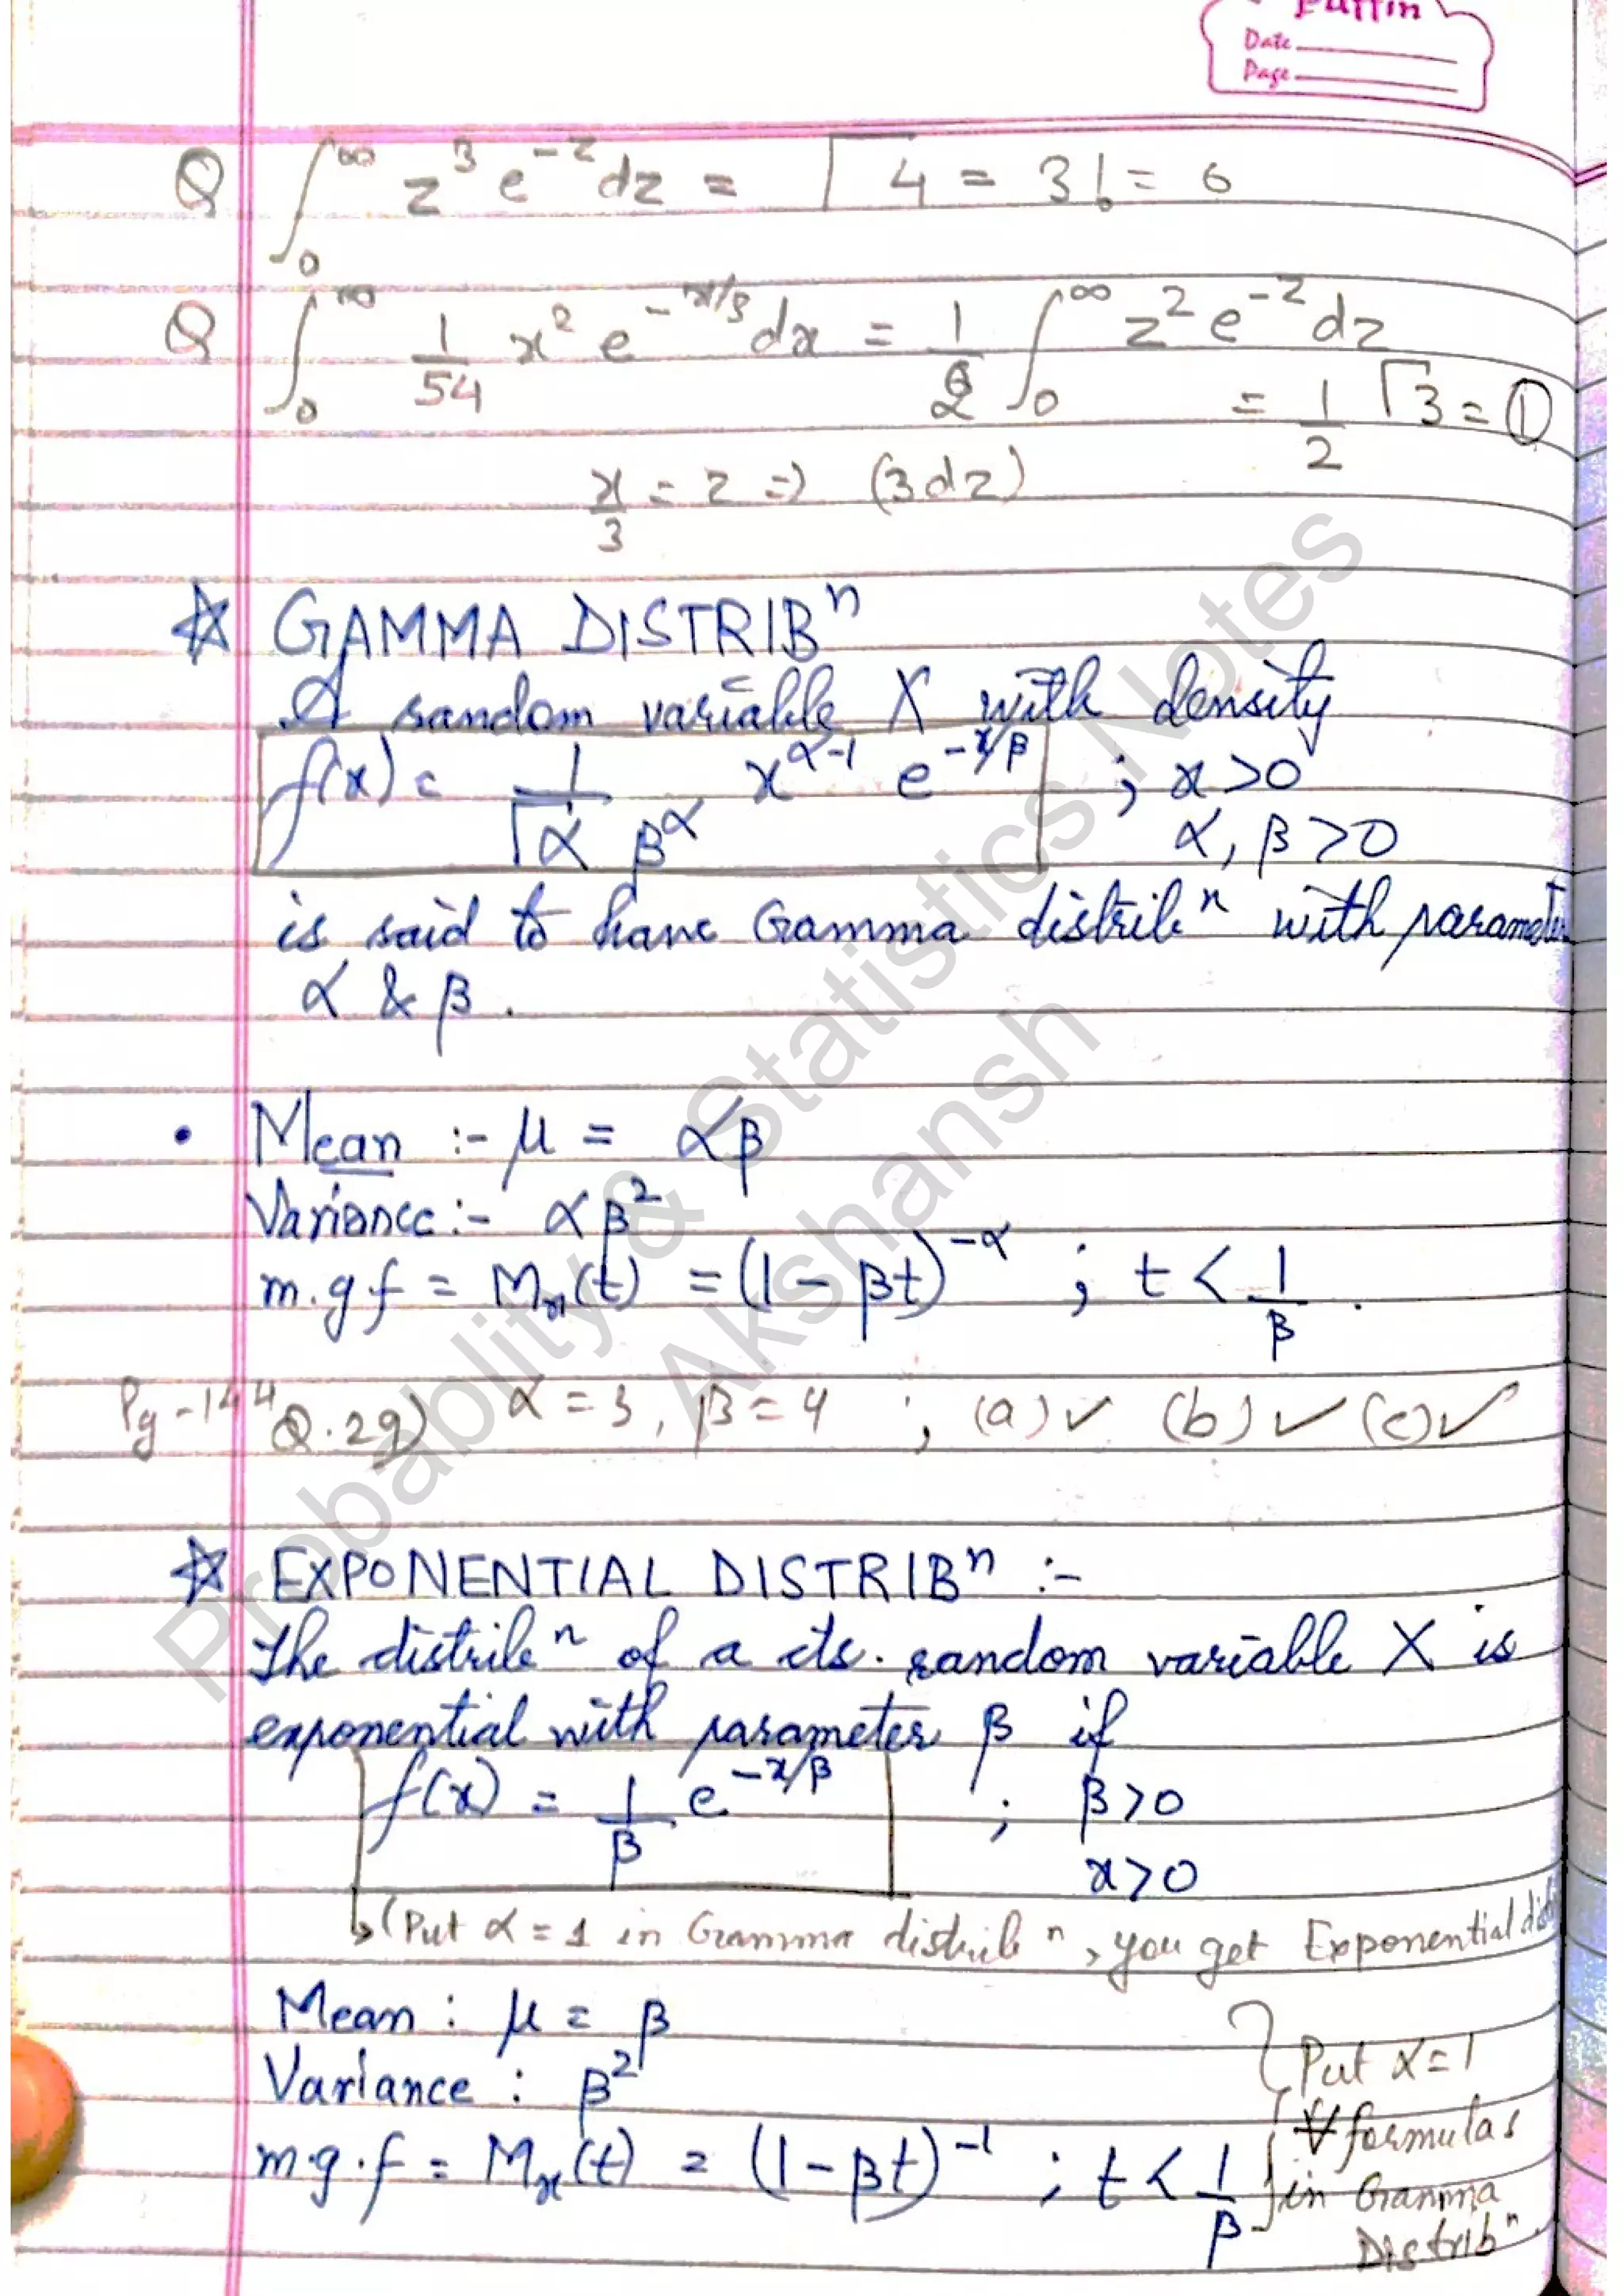 Puffin
Date
Page
Q ∫₀^∞ z³ e^{-z} dz = Γ4 = 3! = 6
Q ∫₀^∞ 1/54 x² e^{-x/3} dx = 1/2 ∫₀^∞ z² e^{-z} dz
= 1/2 Γ3 = ①
x/3 = z => (3dz)
☆ GAMMA DISTRIBⁿ
A random variable X with density
f(x) = 1/(Γα β^α) x^{α-1} e^{-x/β} ; x>0
α, β>0
is said to have Gamma distribⁿ with parameters
α & β.
• Mean :- μ = αβ
Variance :- αβ²
m.g.f = Mₓ(t) = (1-βt)^{-α} ; t < 1/β.
Pg-144 Q.29) α=3, β=4 ; (a)✓ (b)✓ (c)✓
☆ EXPONENTIAL DISTRIBⁿ :-
The distribⁿ of a cts. random variable X is
exponential with parameter β if
f(x) = 1/β e^{-x/β} ; β>0
x>0
↳ (Put α=1 in Gamma distribⁿ, you get Exponential
Mean : μ = β
Variance : β²
m.g.f = Mₓ(t) = (1-βt)^{-1} ; t < 1/β
Put α=1
∀ formulas
in Gamma
Distribⁿ
Probablity & Statistics Notes
Akshansh